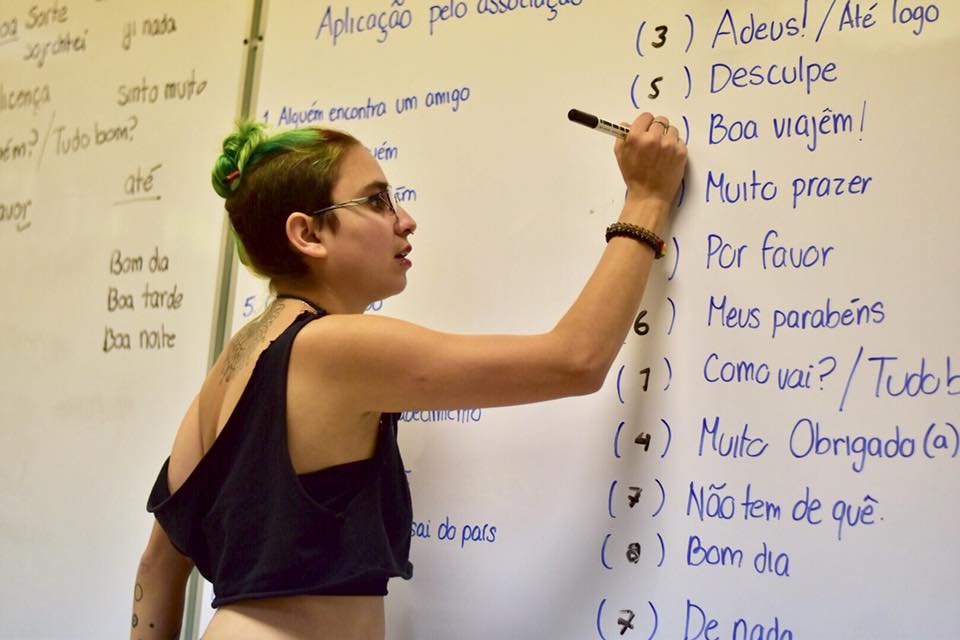 Sorte
ji nada
licença
sinto muito
/Tudo bom?
até
Bom dia
Boa tarde
Boa noite
Aplicação pelo associação
1. Alguém encontra um amigo
5.
sai do país
(3) Adeus! / Até logo
(5) Desculpe
) Boa viajêm!
) Muito prazer
) Por favor
6) Meus parabéns
(1) Como vai? / Tudo b
(4) Muito Obrigado(a)
(7) Não tem de quê.
(8) Bom dia
(7) De nada